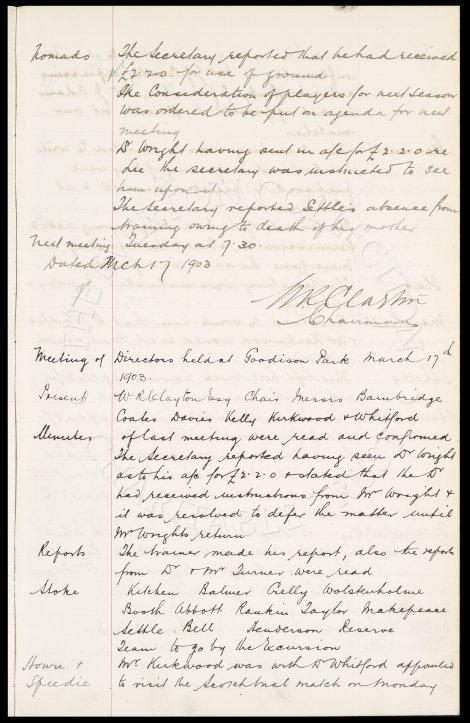 Nomads The Secretary reported that he had received
£2.2.0 for use of ground
The Consideration of players for next season
was ordered to be put on agenda for next
meeting
Dr Wright having sent in a/c for £2.2.0 re
Lee the secretary was instructed to see
him upon it
The Secretary reported Settle's absence from
training owing to death of his mother
Next meeting Tuesday at 7.30.
Dated Mch 17 1903
W R Clayton
Chairman
Meeting of Directors held at Goodison Park March 17th
1903.
Present W R Clayton Esq Chair Messrs Bainbridge
Coates Davies Kelly Kirkwood & Whitford
Minutes of last meeting were read and confirmed
The Secretary reported having seen Dr Wright
as to his a/c for £2.2.0 & stated that the Dr
had received instructions from Mr Wright &
it was resolved to defer the matter until
Mr Wrights return
Reports The trainer made his report, also the reports
from Dr & Mr Turner were read
Stoke Kitchen Balmer Crelly Wolstenholme
Booth Abbott Rankin Taylor Makepeace
Settle Bell Henderson Reserve
Team to go by the Excursion
Howse & Mr Kirkwood was with Dr Whitford appointed
Speedie to visit the Scotch trial match on Monday